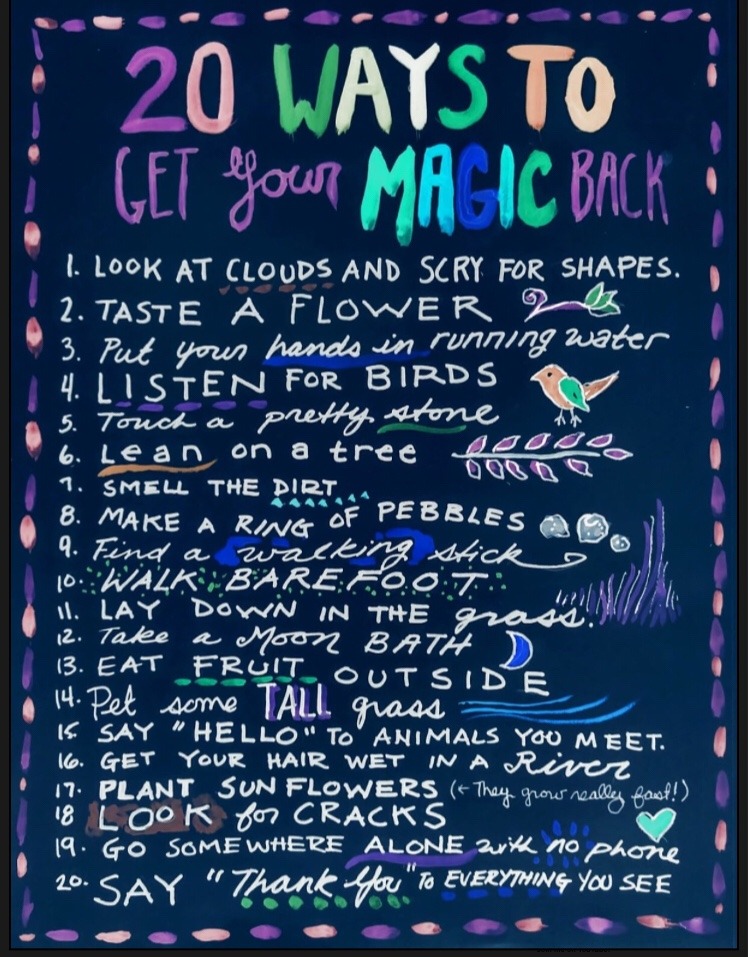 20 WAYS TO
GET your MAGIC BACK
1. LOOK AT CLOUDS AND SCRY FOR SHAPES.
2. TASTE A FLOWER
3. Put your hands in running water
4. LISTEN FOR BIRDS
5. Touch a pretty stone
6. Lean on a tree
7. SMELL THE DIRT...
8. MAKE A RING OF PEBBLES
9. Find a walking stick
10. WALK BAREFOOT
11. LAY DOWN IN THE grass.
12. Take a Moon BATH
13. EAT FRUIT OUTSIDE
14. Pet some TALL grass
15 SAY "HELLO" TO ANIMALS YOU MEET.
16. GET YOUR HAIR WET IN A River
17. PLANT SUNFLOWERS (← They grow really fast!)
18 LOOK for CRACKS
19. GO SOMEWHERE ALONE with no phone
20. SAY "Thank You" TO EVERYTHING YOU SEE